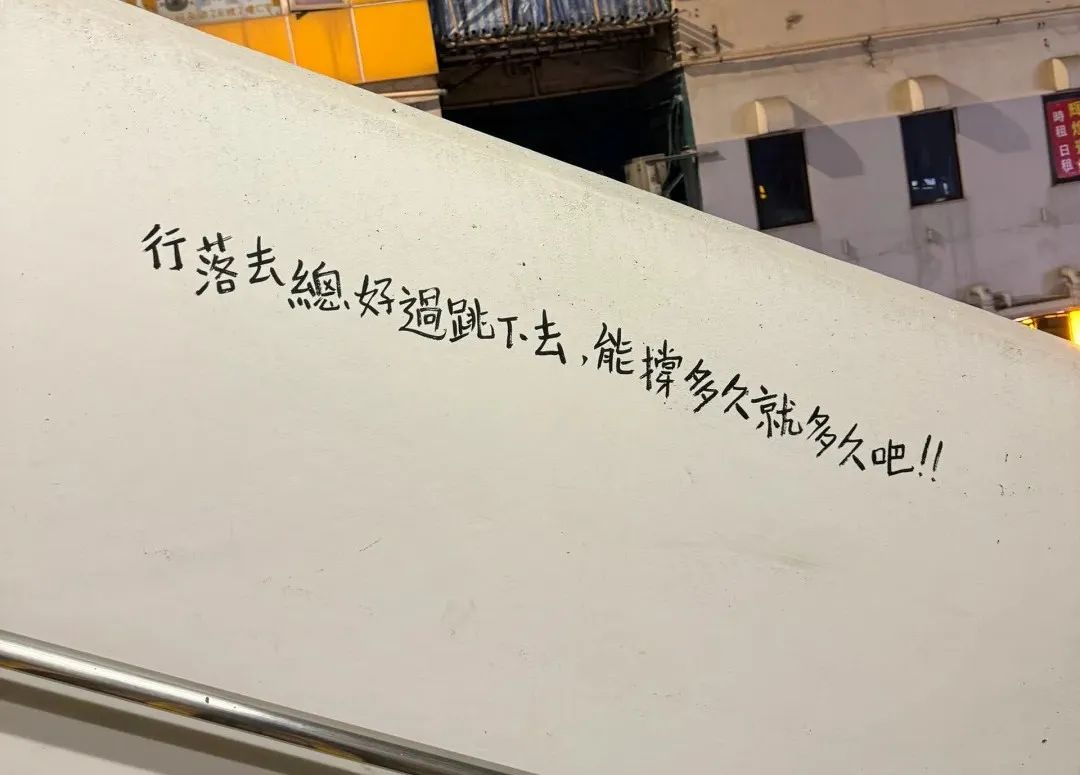 行落去總好過跳下去,能撐多久就多久吧!!
時租日租